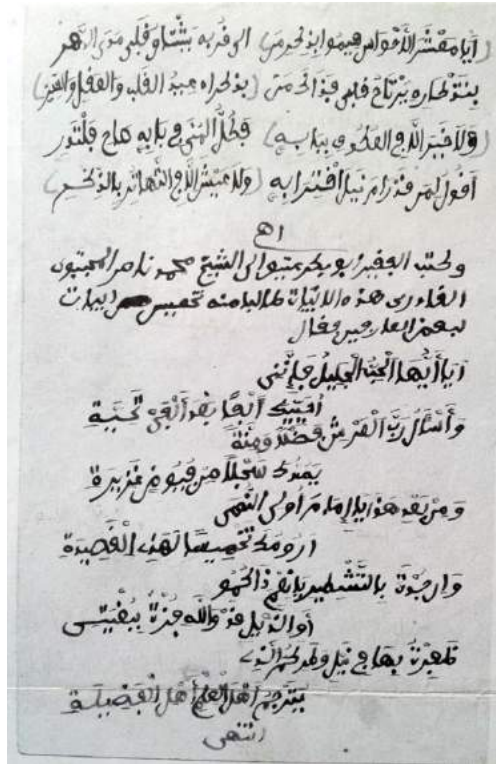 (أيا معشر الاخواس هيموا بذكر من) الى قربه يشتاق قلبي مدى الدهر
بتذكاره يرتاح قلبي (بذكراه عيد القلب والعقل
(ولا خير الا في العكوف ببابه) فكل الهنى في بابه هاج فلتدر
اقول لمن قد رام نيل اقترابه (ولا عيش الا في التهاتر بالذكر)
اهـ
وكتب الفقير أبو بكر عتيق الى الشيخ محمد ناصر
القادرى هذه الابيات طالبا منه تخميس ابيات
لبعض العارفين فقال
أيا أيها الحب الجليل فإنني
ألفا بعد ألفي تحية
وأسأل رب العرش فضلا ومنة
يمدك سجلا من فيوض غزيرة
ومن بعد هذا يا إمام أولى النهى
أرومك تخميسا لهذه القصيدة
وارجوه بالتشطير يا نعم
أو التذييل قد والله ببغيتى
بها في نيل
أهل العلم أهل الفضيلة
انتهى